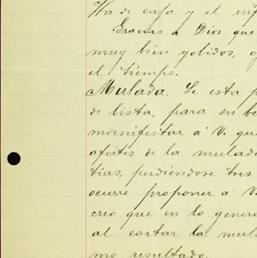 Ha de casa y el
Gracias á Dios que
muy bien
el tiempo.
Mulada. Se esta
de lista, para su
manifestar á V. que
afeites de la mulad
tias, perdiendose tres
ocurre proponer á V
creo que en lo genera
al cortar la mul
mo resultado.